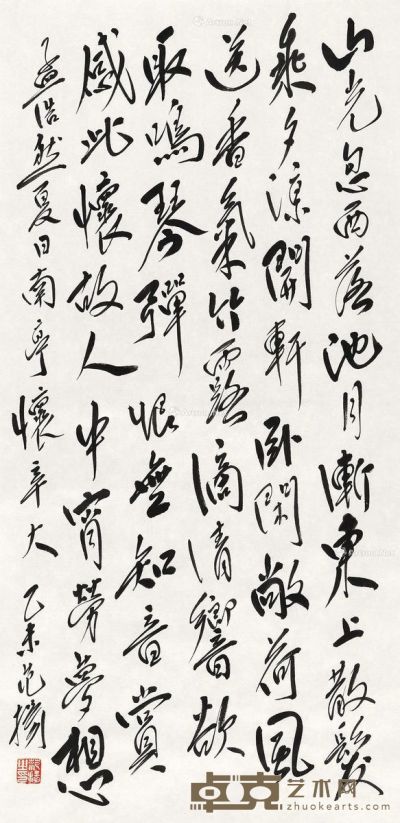 山光忽西落池月漸東上散髮
乘夕涼開軒卧閑敞荷風
送香氣竹露滴清響欲
取鳴琴彈恨無知音賞
感此懷故人中宵勞夢想
孟浩然夏日南亭懷辛大 乙未范揚
卓克艺术网
zhuokearts.com